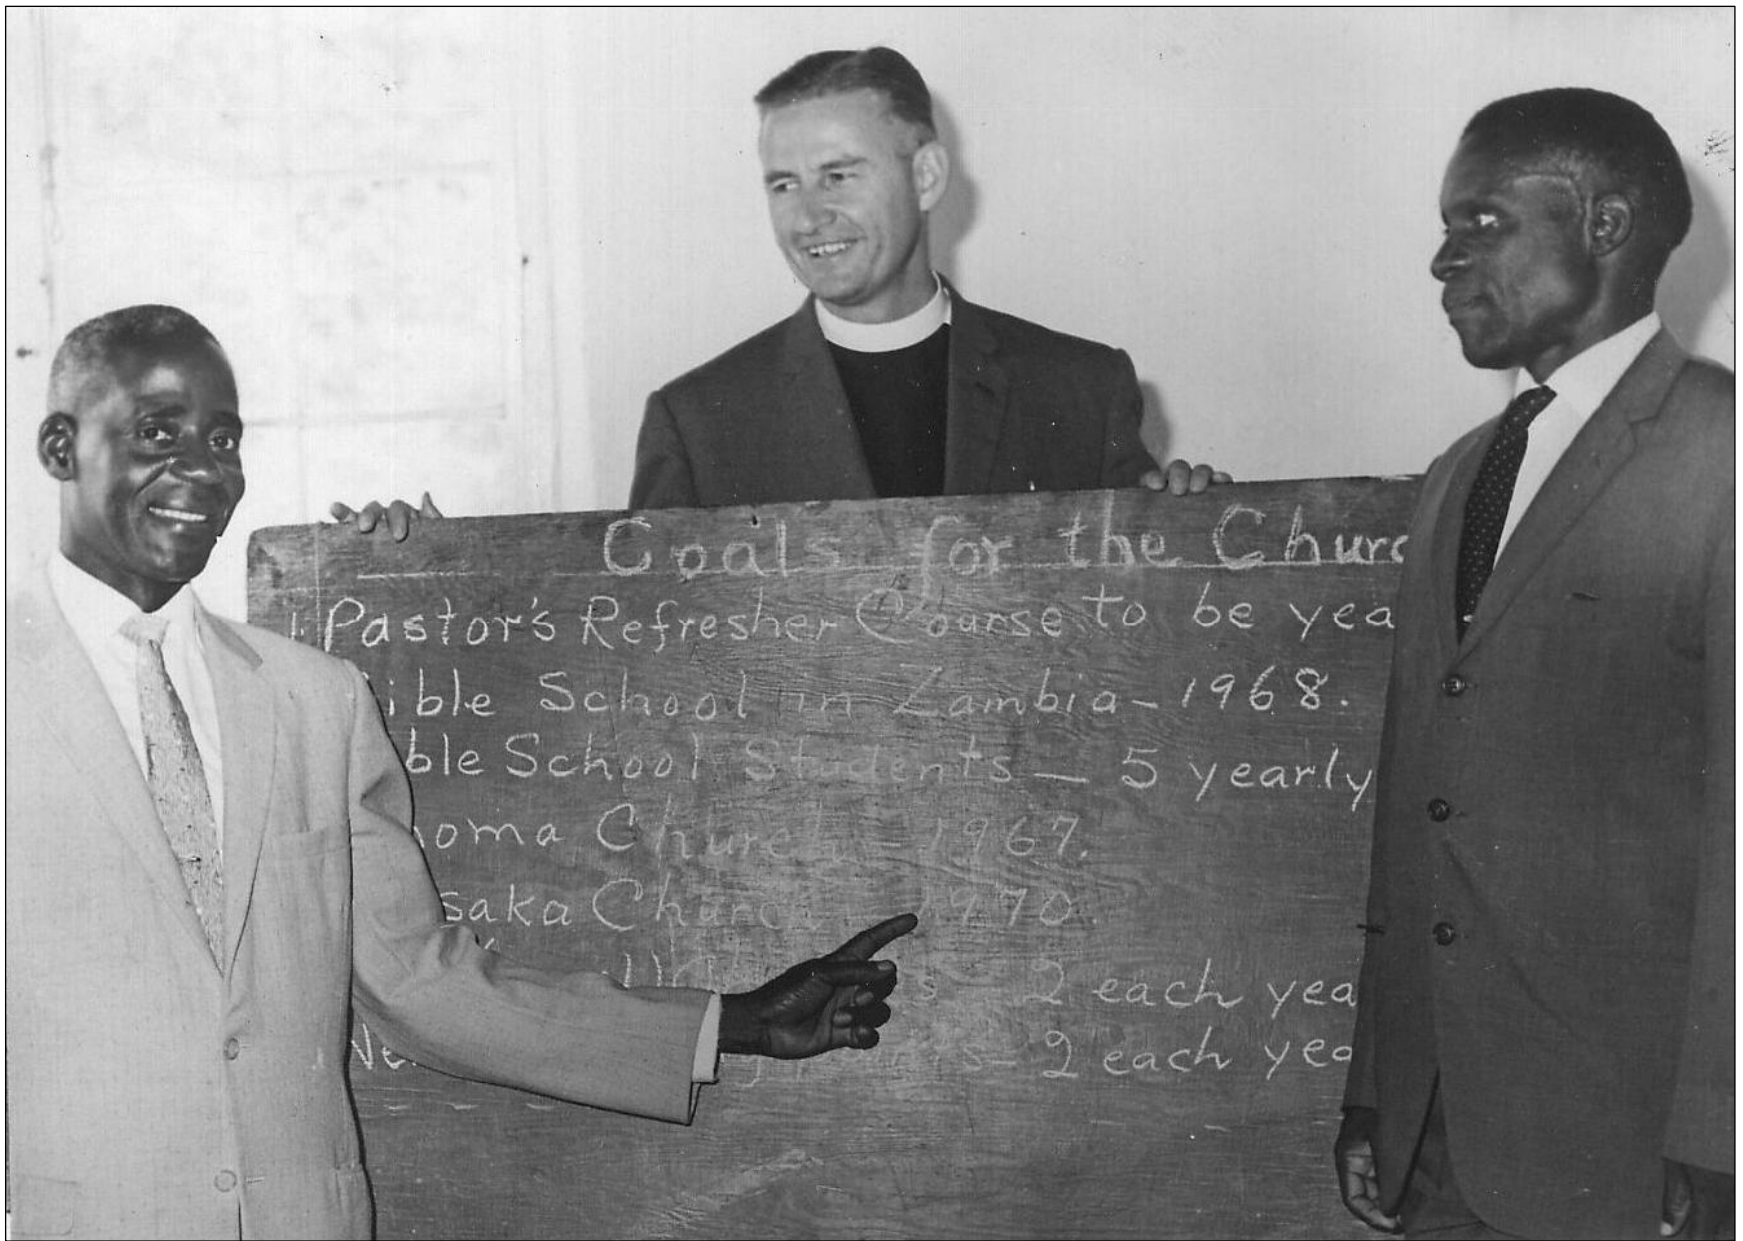 Goals for the Churc
1. Pastor's Refresher Course to be yea
ible School in Zambia - 1968.
ble School Students - 5 yearly
oma Church - 1967.
saka Church 1970.
s - 2 each yea
Ne s - 2 each yea